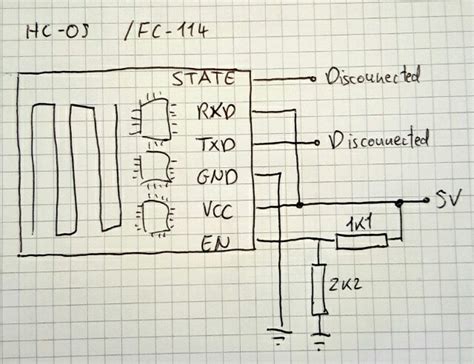 HC-05 /FC-114
STATE Disconnected
RXD
TXD Disconnected
GND
VCC 5V
EN 1K1
2K2